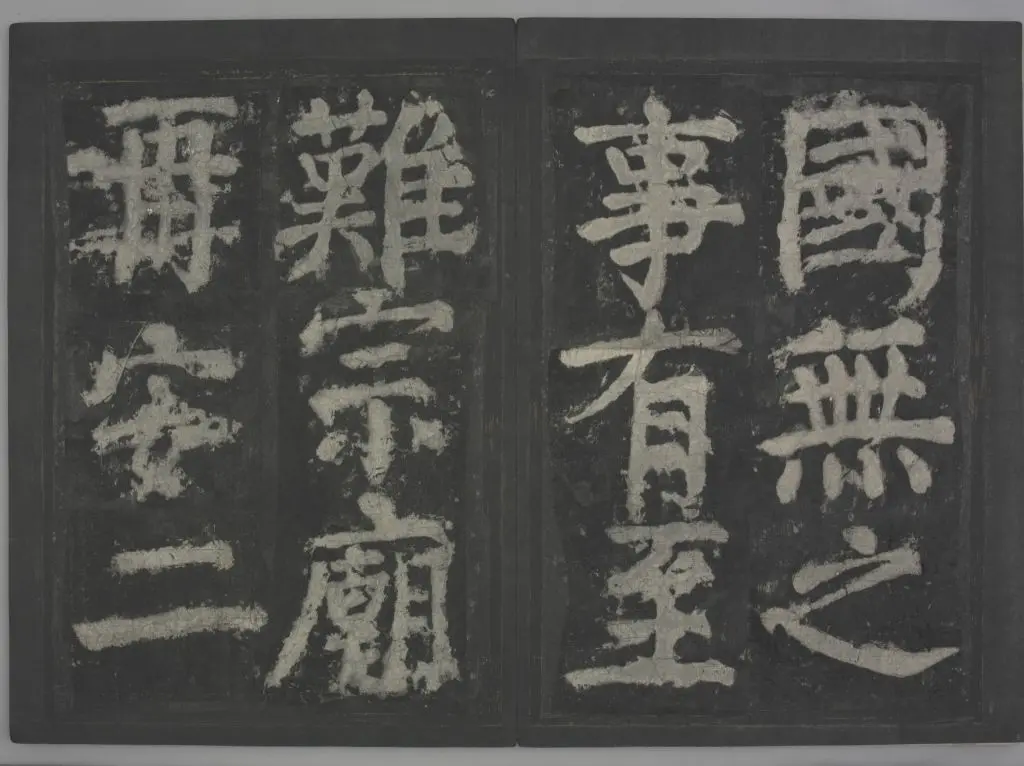 國無之
事有至
難宗廟
再安二